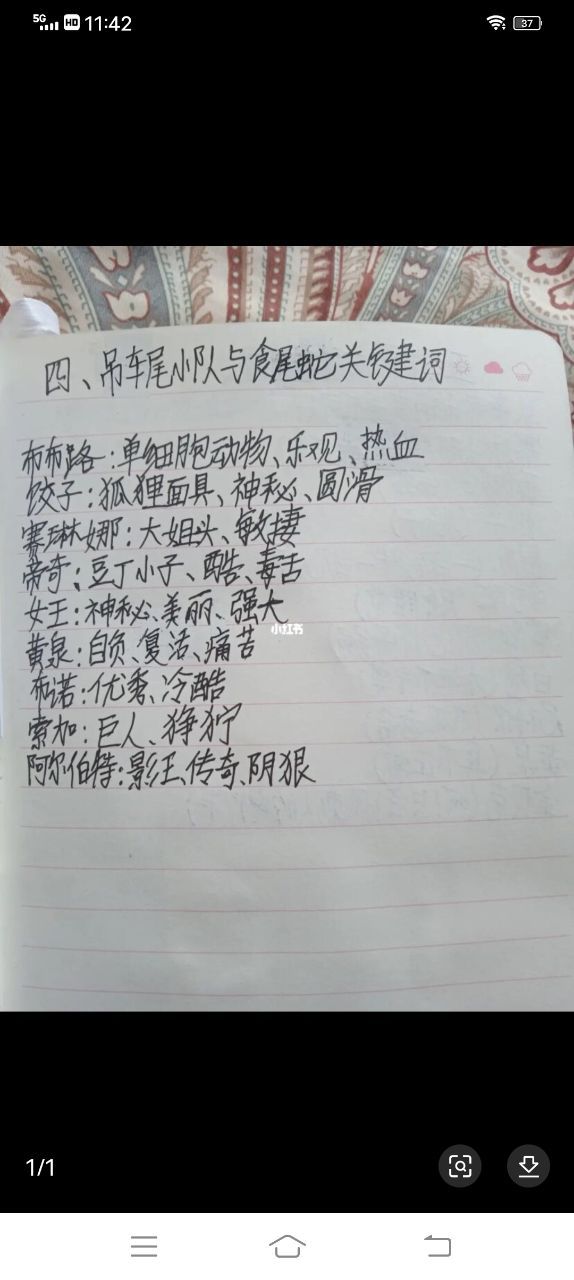 5G HD 11:42 37
四、吊车尾小队与食尾蛇关键词
布布路:单细胞动物、乐观、热血
饺子:狐狸面具、神秘、圆滑
赛琳娜:大姐头、敏捷
帝奇:豆丁小子、酷、毒舌
女王:神秘、美丽、强大
小红书
黄泉:自负、复活、痛苦
布诺:优秀、冷酷
索加:巨人、狰狞
阿尔伯特:影王、传奇、阴狠
1/1